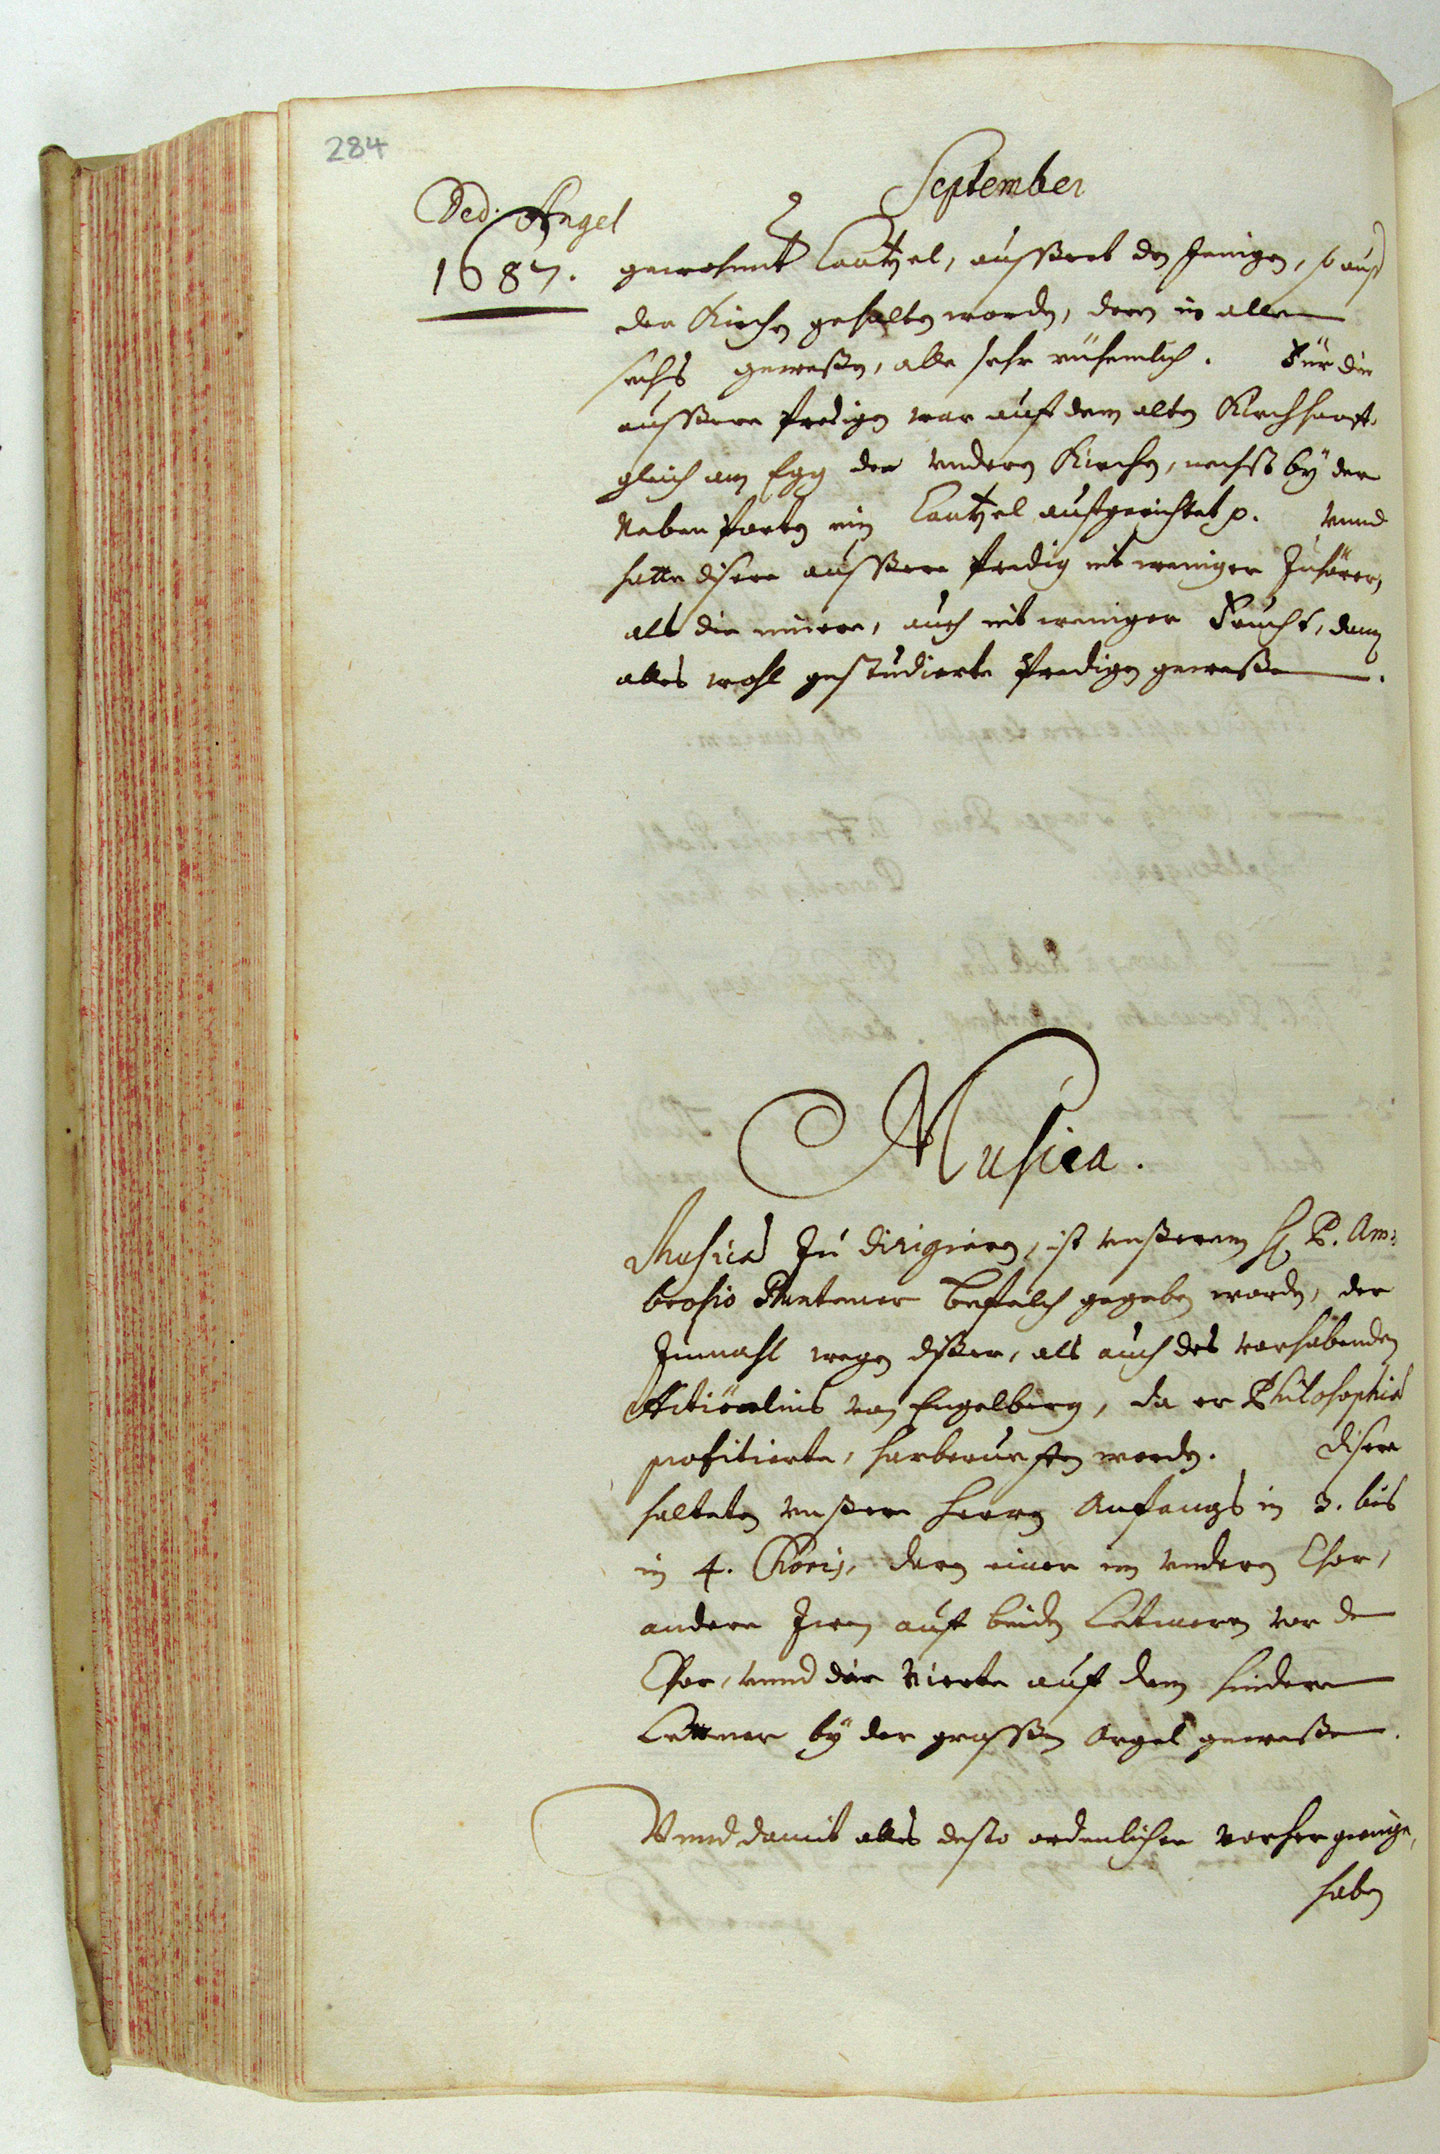 284
September
Ded. Angel
1687.
gewohnt Cantzel, ausßert den Jenigen, so aus
der Kirchen gehalten worden, deren in allem
sechs geweßen, alle sehr rüehmlich. Für die
aussere Predigen war auf dem alten Kirchhooff
gleich am Egg der undern Kirchen, nechst bÿ der
Neben Porten ein Cantzel aufgerichtet p. Unnd
hatte disere aussere Predig nit weniger Zuhörer,
als die innere, auch nit weniger Frucht, dann
alles wohl gestudierte Predigen geweßen.
Musica.
Musica zu dirigieren, ist unßerem H. P. Am:
brosio Puntener befelch gegeben worden, der
Zumahl wegen dißer, als auch des vorhabenden
von Engelberg, da er Philosophia
profitierte, harberueffen worden. Disere
halteten unßere Herren Anfangs in 3. bis
in 4. Choris, deren einer im undern Chor,
andere Zwen auf beiden Letmeren vor dem
Chor, unnd die vierte auf dem hindern
Lettmer bÿ der grossen Orgel geweßen.
Unnd damit alles desto ordenlicher vorhergienge,
haben